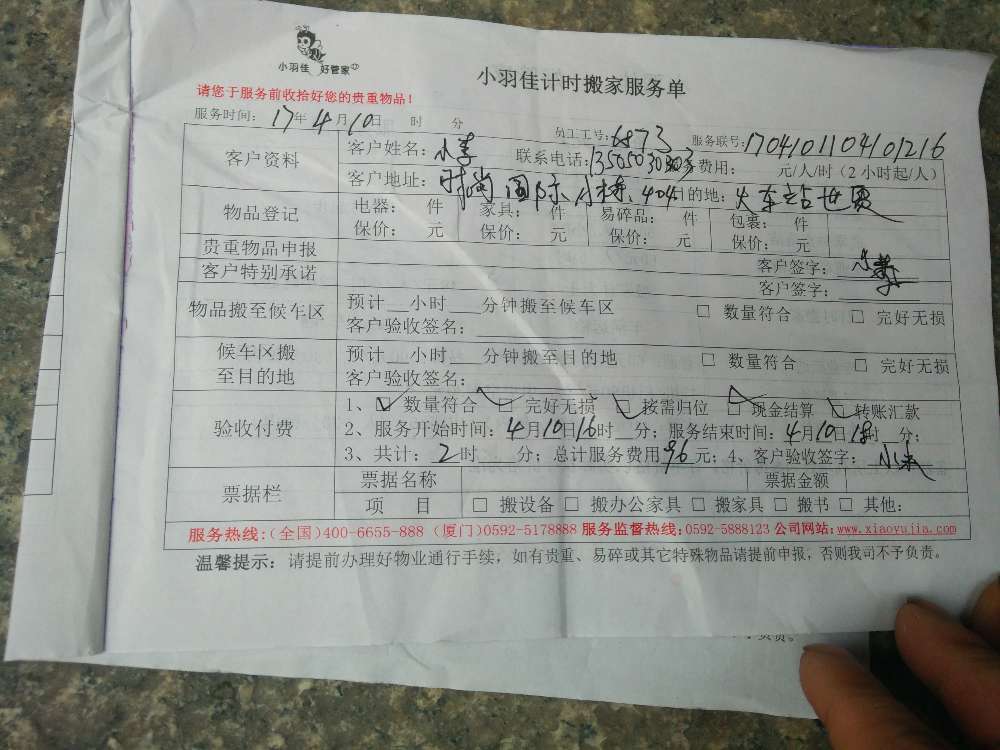 小羽佳 好管家
小羽佳计时搬家服务单
请您于服务前收拾好您的贵重物品！
服务时间： 17年4月10日 时 分 员工工号：6873 服务联号：1704101104101216
客户资料
客户姓名：小李 联系电话：1350503 服务费用： 元/人/时（2小时起/人）
客户地址：时尚国际小楼404 目的地：火车站世贸
物品登记
电器： 件 家具： 件 易碎品： 件 包裹： 件
保价： 元 保价： 元 保价： 元 保价： 元
贵重物品申报 客户签字：
客户特别承诺 客户签字：
物品搬至候车区
预计__小时____分钟搬至候车区 □ 数量符合 □ 完好无损
客户验收签名：
候车区搬至目的地
预计__小时____分钟搬至目的地 □ 数量符合 □ 完好无损
客户验收签名：
验收付费
1、☑ 数量符合 ☑ 完好无损 ☑ 按需归位 ☑ 现金结算 ☑ 转账汇款
2、服务开始时间：4月10日16时__分；服务结束时间：4月10日18时__分；
3、共计：2时___分；总计服务费用96元；4、客户验收签字：
票据栏
票据名称 票据金额
项 目 □ 搬设备 □ 搬办公家具 □ 搬家具 □ 搬书 □ 其他：
服务热线：（全国）400-6655-888（厦门）0592-5178888 服务监督热线：0592-5888123 公司网站：www.xiaoyujia.com
温馨提示：请提前办理好物业通行手续，如有贵重、易碎或其它特殊物品请提前申报，否则我司不予负责。
负责。